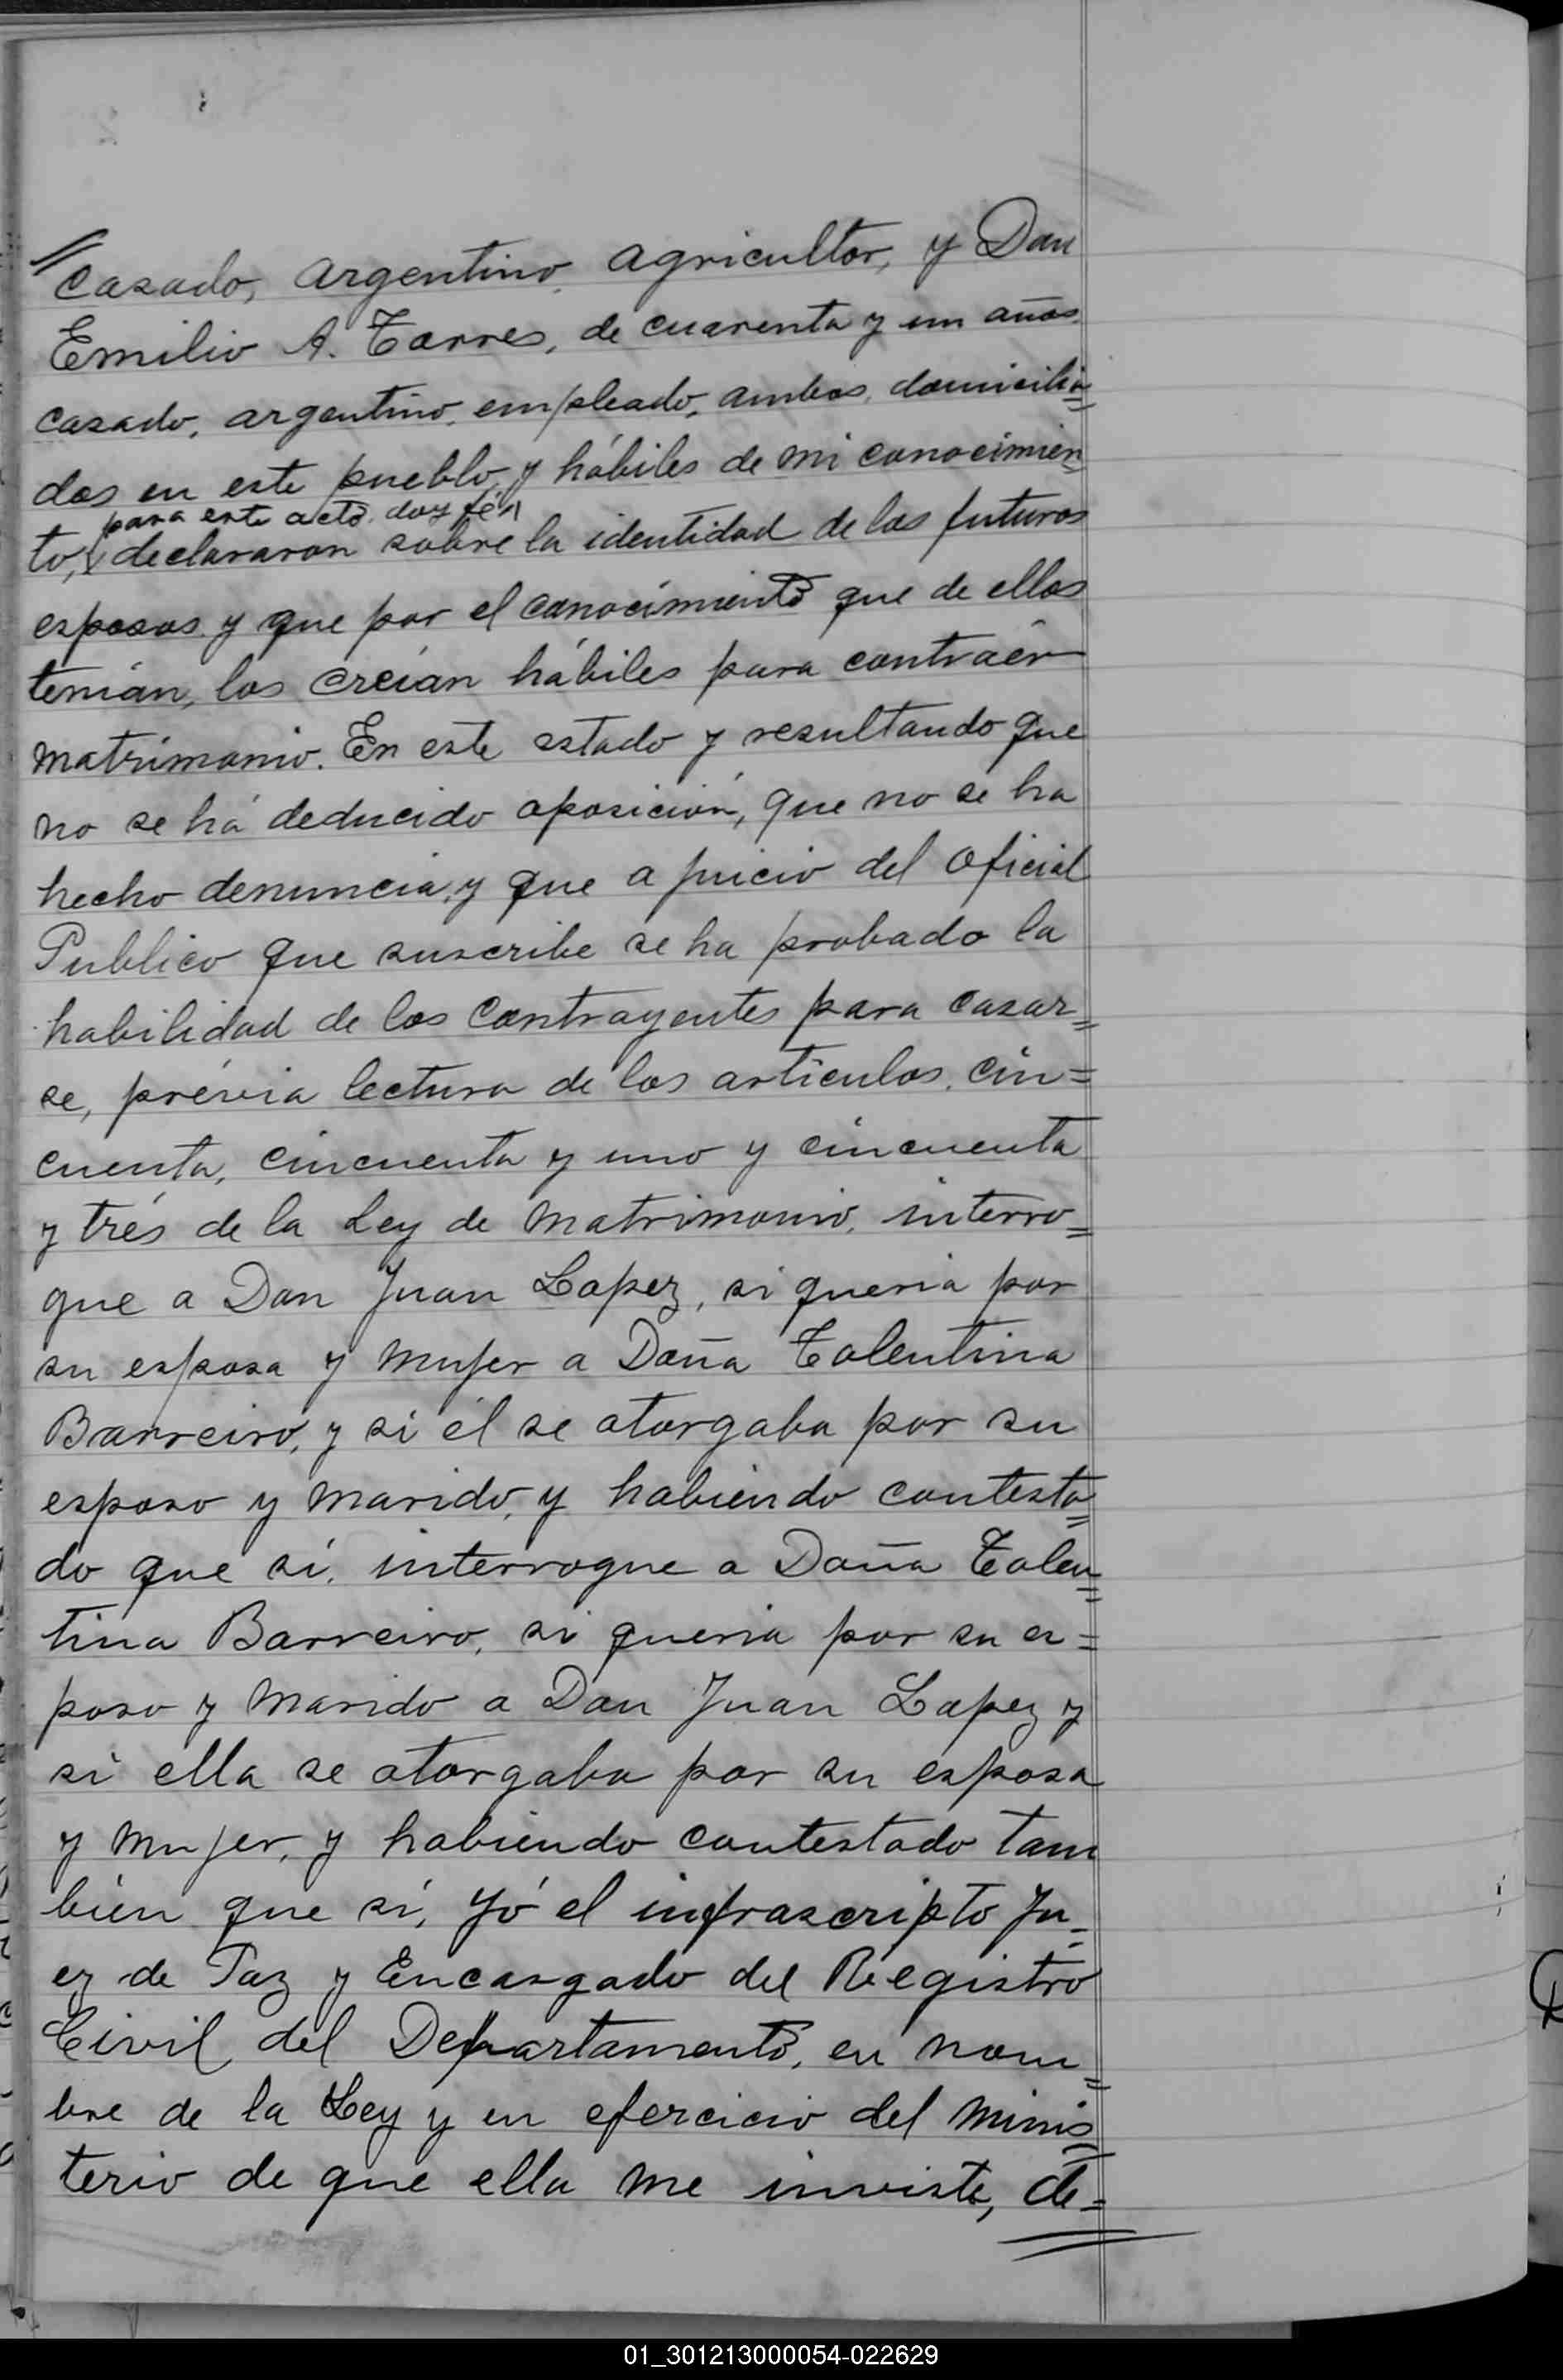 // casado, argentino, agricultor, y Don
Emilio A. Torres, de cuarenta y un años,
casado, argentino, empleado, ambos, domicilia=
dos en este pueblo, y hábiles de mi conocimien=
para este acto, doy fé,
to, declararon sobre la identidad de los futuros
esposos y que por el conocimiento que de ellos
tenián, los creían hábiles para contraér
matrimonio. En este estado y resultando que
no se há deducido oposición, que no se ha
hecho denuncia, y que a juicio del oficial
Publico que suscribe se ha probado la
habilidad de los contrayentes para casar=
se, prévia lectura de los artículos, cin=
cuenta, cincuenta y uno y cincuenta
y trés de la Ley de Matrimonio, interro=
gue a Don Juan Lopez, si queria por
su esposa y mujer a Doña Tolentina
Barreiro, y si él se otorgaba por su
esposo y marido, y habiendo contesta=
do que sí, interrogue a Doña Tolen=
tina Barreiro, si queria por su es=
poso y marido a Don Juan Lopez y
si ella se otorgaba por su esposa
y mujer, y habiendo contestado tam
bien que sí, yó el infrascripto Ju=
ez de Paz y Encargado del Registro
Civil del Departamento, en nom=
bre de la Ley y en ejercicio del minis=
terio de que ella me inviste, de=
01_301213000054-022629